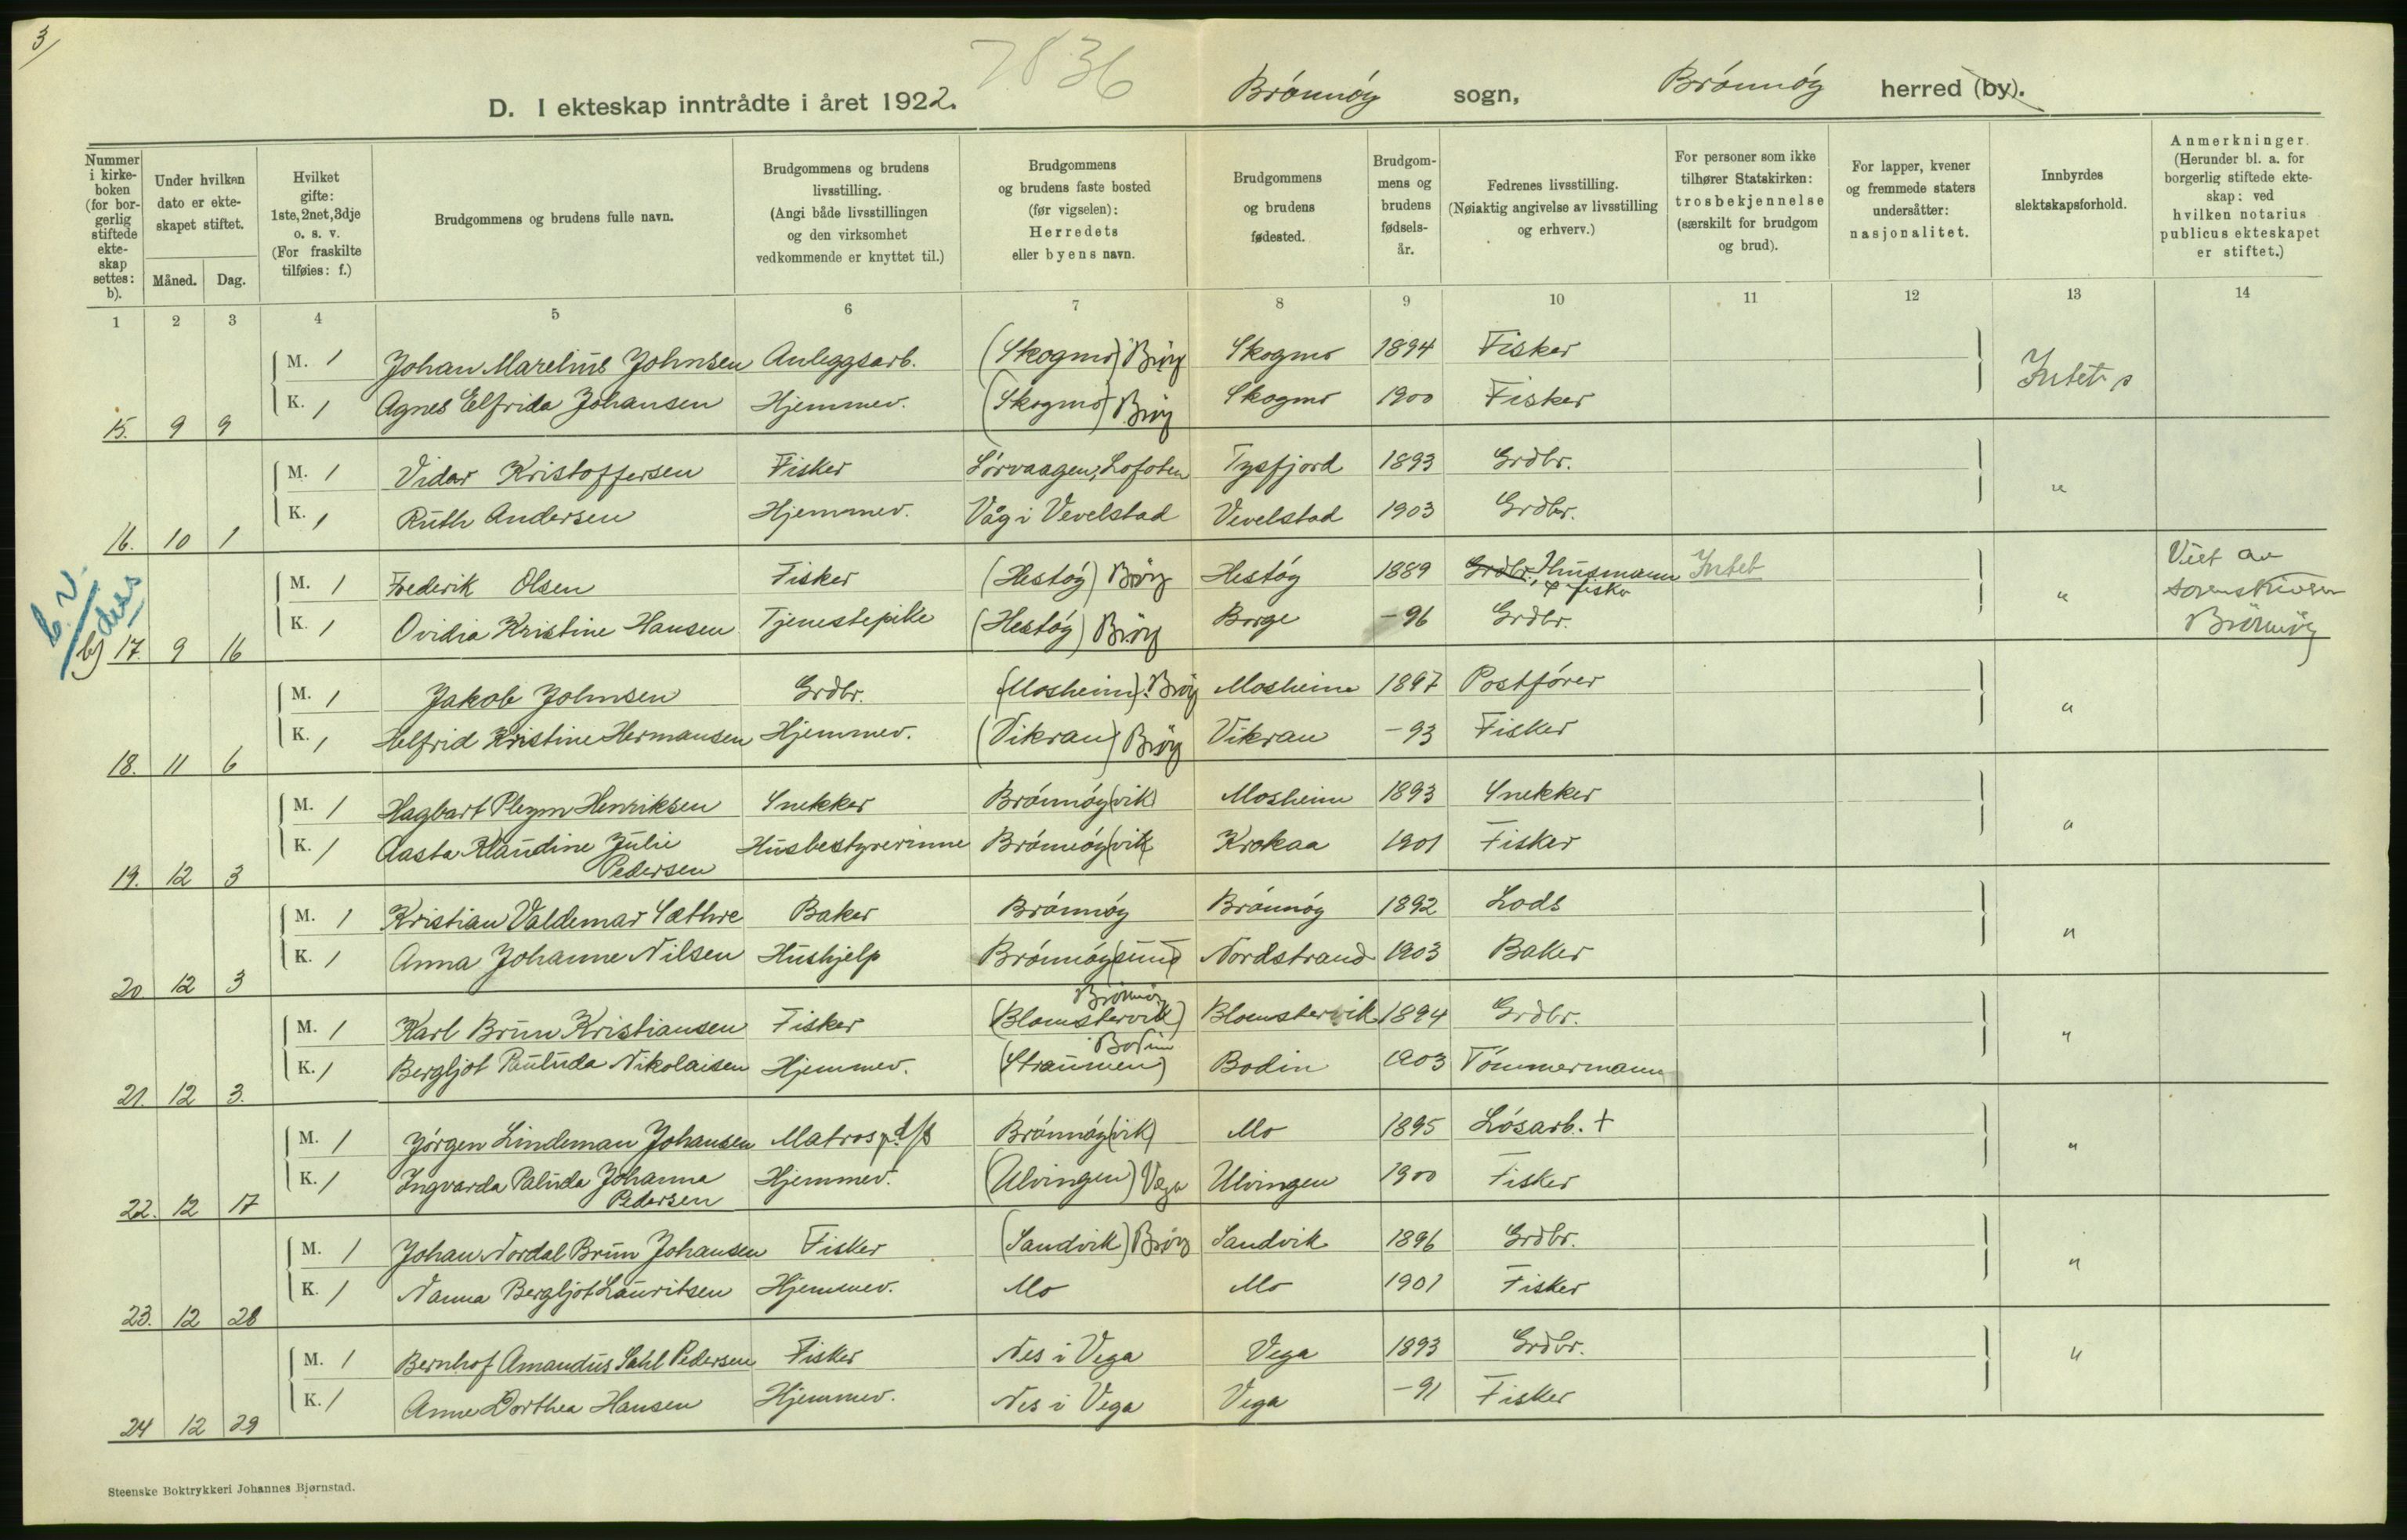 3/
7836
D. I ekteskap inntrådte i året 1922. Brönnöy sogn, Brönnöy herred (by).
Nummer i kirke-boken (for bor-gerlig stiftede ekte-skap settes: b).
Under hvilken dato er ekte-skapet stiftet.
Måned. Dag.
Hvilket gifte: 1ste, 2net, 3dje o. s. v. (For fraskilte tilføies: f.)
Brudgommens og brudens fulle navn.
Brudgommens og brudens livsstilling. (Angi både livsstillingen og den virksomhet vedkommende er knyttet til.)
Brudgommens og brudens faste bosted (før vigselen): Herredets eller byens navn.
Brudgommens og brudens fødested.
Brudgom-mens og brudens fødsels-år.
Fedrenes livsstilling. (Nøiaktig angivelse av livsstilling og erhverv.)
For personer som ikke tilhører Statskirken: trosbekjennelse (særskilt for brudgom og brud).
For lapper, kvener og fremmede staters undersåtter: nasjonalitet.
Innbyrdes slektskapsforhold.
Anmerkninger. (Herunder bl. a. for borgerlig stiftede ekte-skap: ved hvilken notarius publicus ekteskapet er stiftet.)
1 2 3 4 5 6 7 8 9 10 11 12 13 14
M. 1 Johan Marelius Johnsen Anleggsarb. (Skogmo) Bröy Skogmo 1894 Fisker
K. 1 Agnes Elfrida Johansen Hjemmev. (Skogmo) Bröy Skogmo 1900 Fisker Intet
15. 9 9
M. 1 Vidar Kristoffersen Fisker Sörvaagen, Lofoten Tysfjord 1893 Grdbr.
K. 1 Ruth Andersen Hjemmev. Våg i Vevelstad Vevelstad 1903 Grdbr. "
16. 10 1
b. v.
M. 1 Frederik Olsen Fisker (Hestöy) Bröy Hestöy 1889 Grdbr. Husmann & fisker Intet Viet av
K. 1 Ovidia Kristine Hansen Tjenestepike (Hestöy) Bröy Borge -96 Grdbr. " sorenskriveren Brönnöy
b) 17. 9 16
M. 1 Jakob Johnsen Grdbr. (Mosheim) Bröy Mosheim 1897 Postförer
K. 1 Helfrid Kristine Hermansen Hjemmev. (Vikran) Bröy Vikran -93 Fisker "
18. 11 6
M. 1 Hagbart Pleym Henriksen Snekker Brönnöy(vik) Mosheim 1893 Snekker
K. 1 Aasta Klaudine Julie Pedersen Husbestyrerinne Brönnöy(vik) Krokaa 1901 Fisker "
19. 12 3
M. 1 Kristian Valdemar Sæthre Baker Brönnöy Brönnöy 1892 Lods
K. 1 Anna Johanne Nilsen Hushjelp Brönnöy(sund) Nordstrand 1903 Baker "
20 12 3
M. 1 Karl Brun Kristiansen Fisker (Blomstervik) Brönnöy Blomstervik 1894 Grdbr.
K. 1 Bergljot Pauluda Nikolaisen Hjemmev. (Straumen) Bodin Bodin 1903 Tömmermann "
21. 12 3.
M. 1 Jörgen Lindeman Johansen Matros p. d/s Brönnöy(vik) Mo 1895 Lösarb. +
K. 1 Ingvarda Paluda Johanna Pedersen Hjemmev. (Ulvingen) Vega Ulvingen 1900 Fisker "
22. 12 17
M. 1 Johan Nordal Brun Johansen Fisker (Sandvik) Bröy Sandvik 1896 Grdbr.
K. 1 Nanna Bergljot Lauritsen Hjemmev. Mo Mo 1901 Fisker "
23. 12 28
M. 1 Bernhof Amandus Sahl Pedersen Fisker Nes i Vega Vega 1893 Grdbr.
K. 1 Anne Dorthea Hansen Hjemmev. Nes i Vega Vega -91 Fisker "
24 12 29
Steenske Boktrykkeri Johannes Bjørnstad.